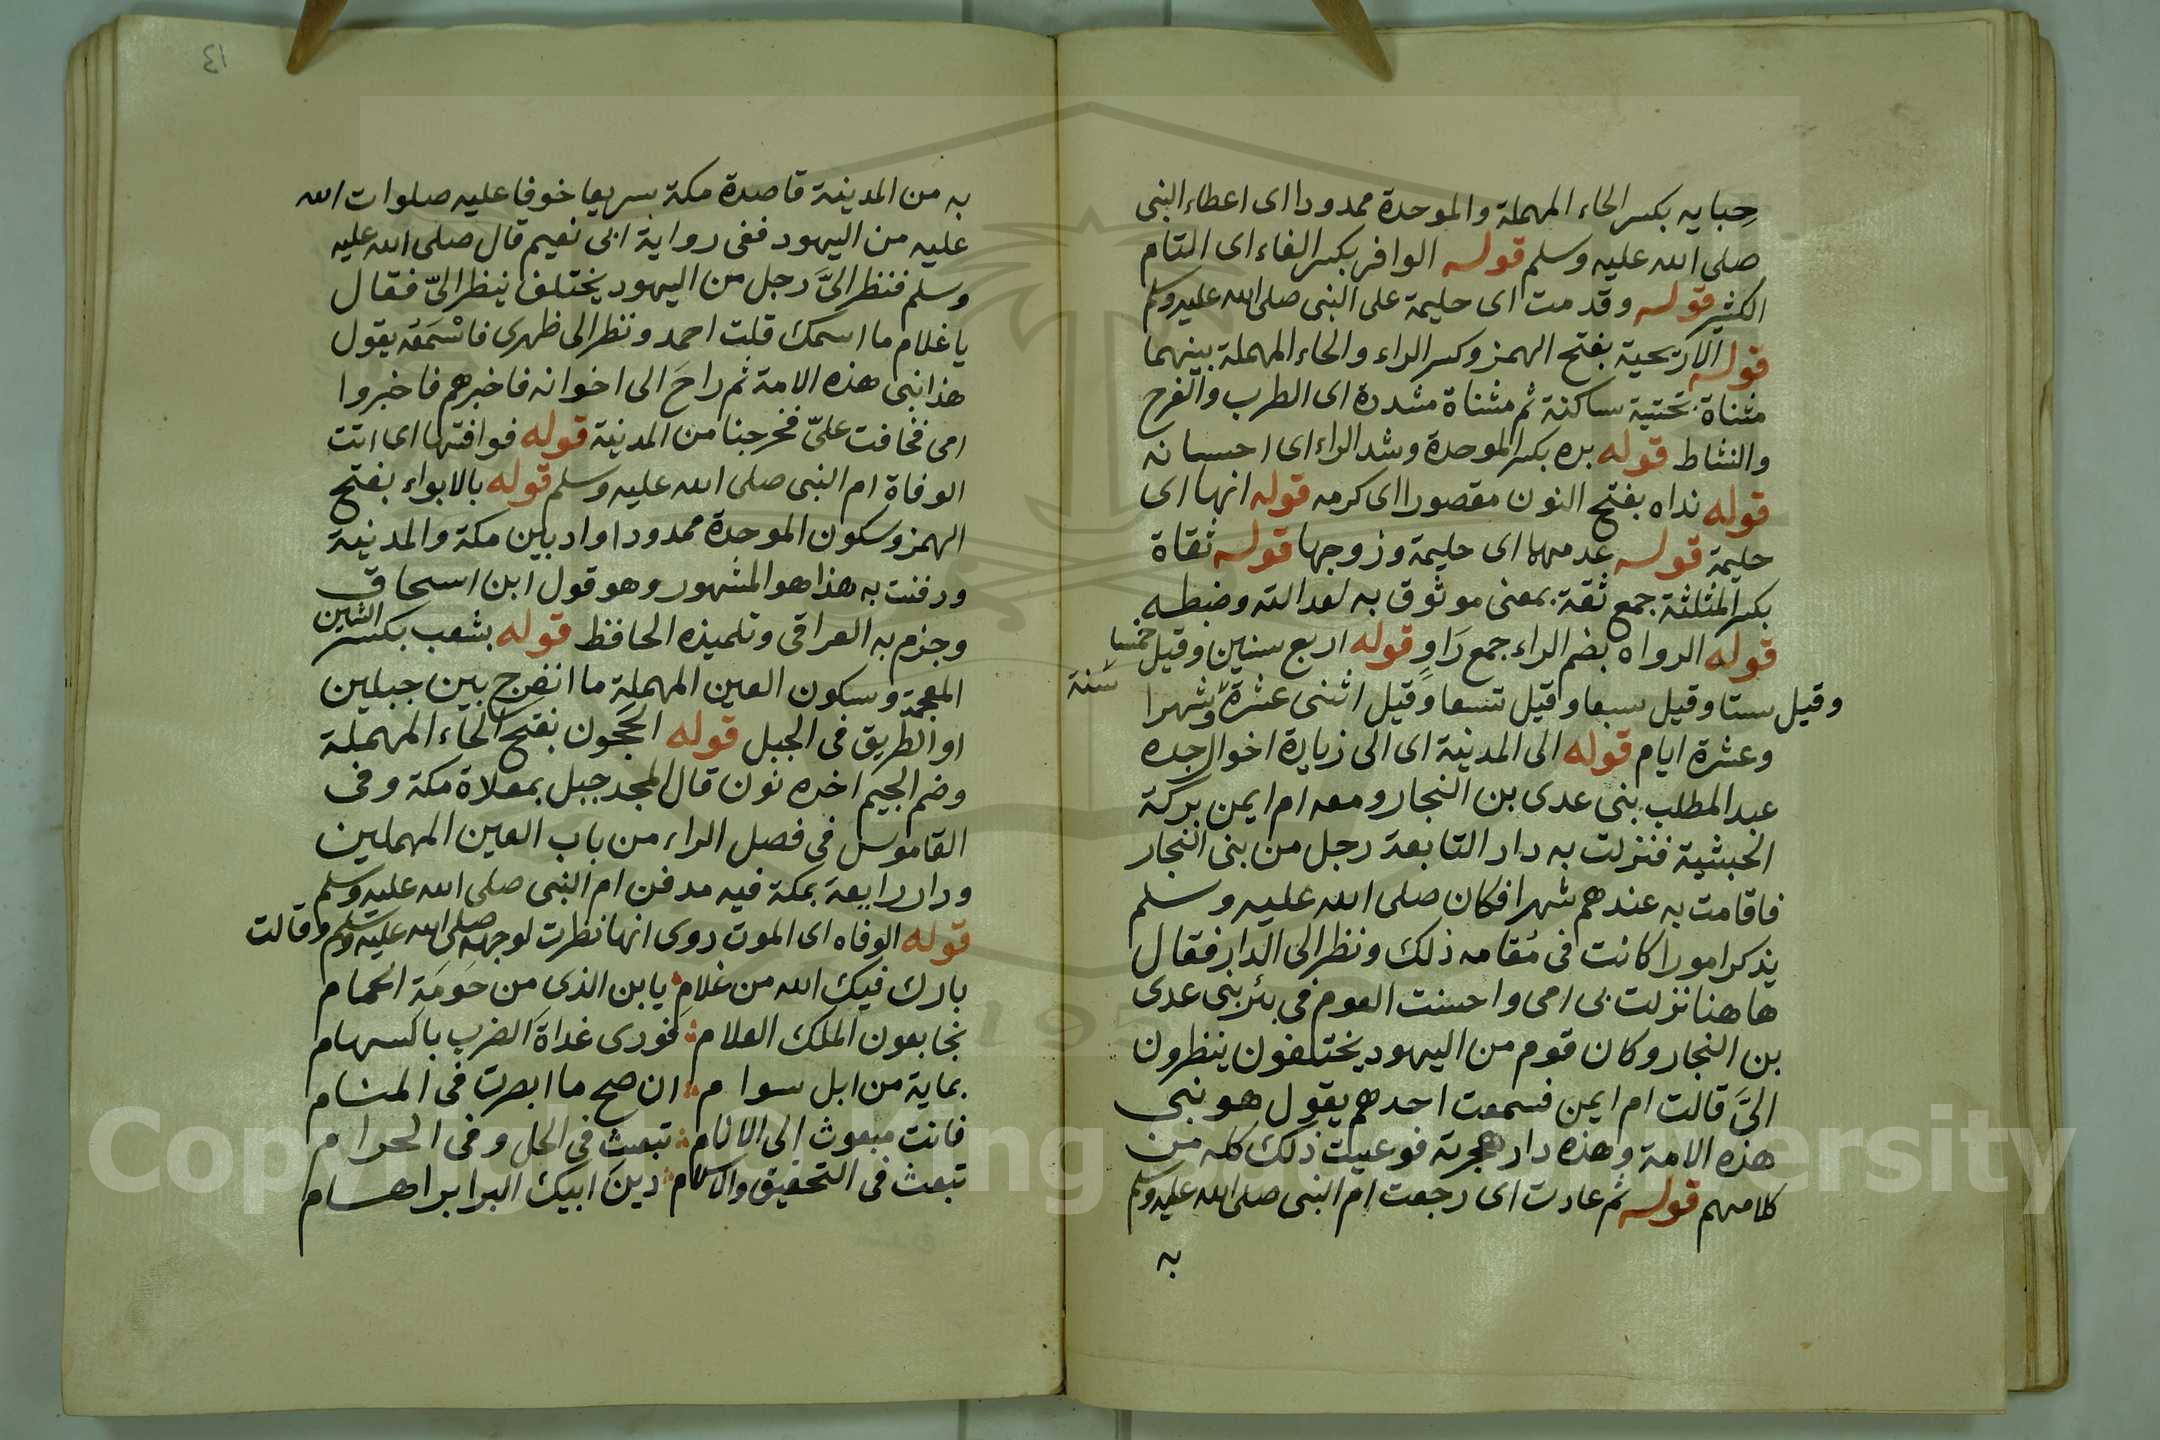 حِبايه بكسر الحاء المهملة والموحدة ممدودا اى اعطاء النبى
صلى الله عليه وسلم قوله الوافر بكسر الفاء اى التام
الكثير قوله وقدمت اى حليمة على النبى صلى الله عليه وسلم
قوله الاريحية بفتح الهمز وكسر الراء والحاء المهملة بينهما
مثناة تحتية ساكنة ثم مثناة مشددة اى الطرب والفرح
والنشاط قوله بره بكسر الموحدة وشد الراء اى احسانه
قوله نداه بفتح النون مقصورا اى كرمه قوله انها اى
حليمة قوله عدمها اى حليمة وزوجها قوله ثقاة
بكسر المثلثة جمع ثقة بمعنى موثوق به لعدالته وضبطه
قوله الرواه بضم الراء جمع رَاوٍ قوله اربع سنين وقيل خمسا
وقيل ستا وقيل سبعا وقيل تسعا وقيل اثنى عشرة سنة وشهرا
وعشرة ايام قوله الى المدينة اى الى زيارة اخوال جده
عبد المطلب بنى عدى بن النجار ومعه ام ايمن بركة
الحبشية فنزلت به دار التابعة رجل من بنى النجار
فاقامت به عندهم شهرا فكان صلى الله عليه وسلم
يذكر امورا كانت فى مُقامه ذلك ونظر الى الدار فقال
هاهنا نزلت بى امى واحسنت العوم فى بئر بنى عدى
بن النجار وكان قوم من اليهود يختلفون ينظرون
الىَّ قالت ام ايمن فسمعت احدهم يقول هو نبى
هذه الامة وهذه دار هجرته فوعيت ذلك كله من
كلامهم قوله ثم عادت اى رجعت ام النبى صلى الله عليه وسلم
به
١٤
به من المدينة قاصدة مكة سريعا خوفا عليه صلوات الله
عليه من اليهود ففى رواية ابى نعيم قال صلى الله عليه
وسلم فنظر الىَّ رجل من اليهود يختلف ينظر الىّ فقال
يا غلام ما اسمك قلت احمد ونظر الى ظهرى فاسْمَعُه يقول
هذا نبى هذه الامة ثم راحَ الى اخوانه فاخبرهم فاخبروا
امى فخافت علىّ فخرجنا من المدينة قوله فوافتها اى اتت
الوفاة ام النبى صلى الله عليه وسلم قوله بالابواء بفتح
الهمز وسكون الموحدة ممدودا واد بين مكة والمدينة
ودفنت به هذا هو المشهور وهو قول ابن اسحاق
وجزم به العراقى وتلميذه الحافظ قوله بشعب بكسر الشين
المعجمة وسكون العين المهملة ما انفرج بين جبلين
او الطريق فى الجبل قوله الحَجون بفتح الحاء المهملة
وضم الجيم اخره نون قال المجد جبل بمعلاة مكة وفى
القاموس فى فصل الراء من باب العين المهملين
ودار رايعة بمكة فيه مدفن ام النبى صلى الله عليه وسلم
قوله الوفاه اى الموت روى انها نظرت لوجهه صلى الله عليه وسلم وقالت
بارك فيك الله من غلامِ يا بن الذى من حَومَة الحمام
نجا بعون الملك العلام فودى غداة الضرب بالسهام
بماية من ابل سوام ان صح ما ابصرت فى المنام
فانت مبعوث الى الانام تبعث فى الحل وفى الحرام
تبعث فى التحقيق والاسلام دين ابيك البر ابراهام